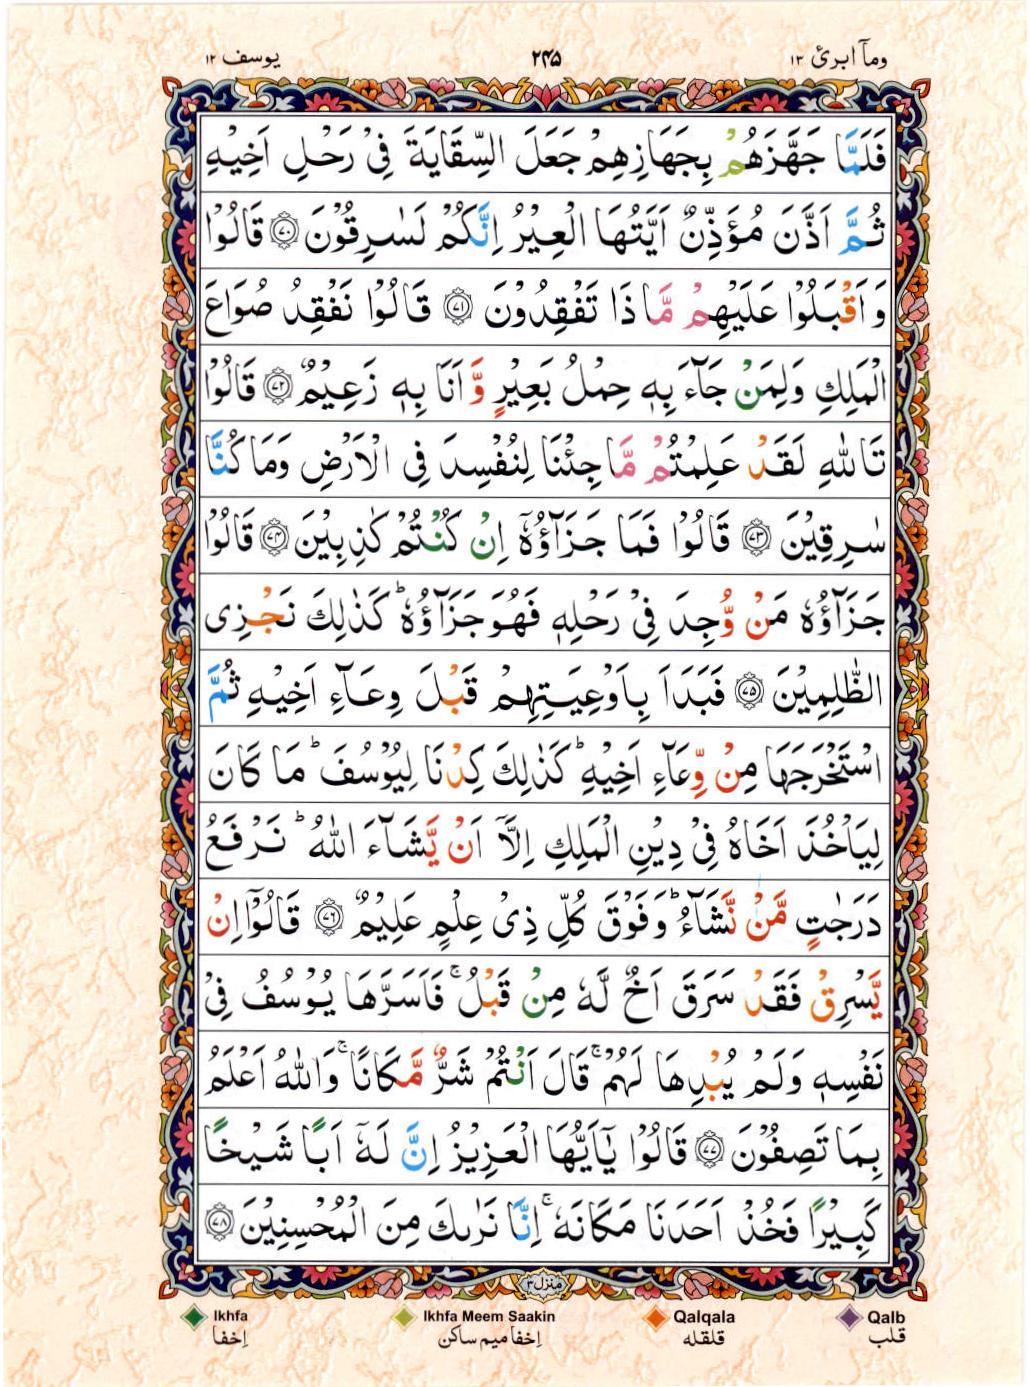 ومآ ابرئ ۱۳
۲۴۵
یوسف ۱۲
فَلَمَّا جَهَّزَهُمْ بِجَهَازِهِمْ جَعَلَ السِّقَايَةَ فِيْ رَحْلِ اَخِيْهِ
ثُمَّ اَذَّنَ مُؤَذِّنٌ اَيَّتُهَا الْعِيْرُ اِنَّكُمْ لَسٰرِقُوْنَ ﴿۷۰﴾ قَالُوْا
وَاَقْبَلُوْا عَلَيْهِمْ مَّاذَا تَفْقِدُوْنَ ﴿۷۱﴾ قَالُوْا نَفْقِدُ صُوَاعَ
الْمَلِكِ وَلِمَنْ جَآءَ بِهٖ حِمْلُ بَعِيْرٍ وَّاَنَا بِهٖ زَعِيْمٌ ﴿۷۲﴾ قَالُوْا
تَاللّٰهِ لَقَدْ عَلِمْتُمْ مَّا جِئْنَا لِنُفْسِدَ فِي الْاَرْضِ وَمَا كُنَّا
سٰرِقِيْنَ ﴿۷۳﴾ قَالُوْا فَمَا جَزَآؤُهٗٓ اِنْ كُنْتُمْ كٰذِبِيْنَ ﴿۷۴﴾ قَالُوْا
جَزَآؤُهٗ مَنْ وُّجِدَ فِيْ رَحْلِهٖ فَهُوَ جَزَآؤُهٗ ؕ كَذٰلِكَ نَجْزِي
الظّٰلِمِيْنَ ﴿۷۵﴾ فَبَدَاَ بِاَوْعِيَتِهِمْ قَبْلَ وِعَآءِ اَخِيْهِ ثُمَّ
اسْتَخْرَجَهَا مِنْ وِّعَآءِ اَخِيْهِ ؕ كَذٰلِكَ كِدْنَا لِيُوْسُفَ ؕ مَا كَانَ
لِيَاْخُذَ اَخَاهُ فِيْ دِيْنِ الْمَلِكِ اِلَّآ اَنْ يَّشَآءَ اللّٰهُ ؕ نَرْفَعُ
دَرَجٰتٍ مَّنْ نَّشَآءُ ؕ وَفَوْقَ كُلِّ ذِيْ عِلْمٍ عَلِيْمٌ ﴿۷۶﴾ قَالُوْٓا اِنْ
يَّسْرِقْ فَقَدْ سَرَقَ اَخٌ لَّهٗ مِنْ قَبْلُ ۚ فَاَسَرَّهَا يُوْسُفُ فِيْ
نَفْسِهٖ وَلَمْ يُبْدِهَا لَهُمْ ۚ قَالَ اَنْتُمْ شَرٌّ مَّكَانًا ۚ وَاللّٰهُ اَعْلَمُ
بِمَا تَصِفُوْنَ ﴿۷۷﴾ قَالُوْا يٰٓاَيُّهَا الْعَزِيْزُ اِنَّ لَهٗٓ اَبًا شَيْخًا
كَبِيْرًا فَخُذْ اَحَدَنَا مَكَانَهٗ ۚ اِنَّا نَرٰىكَ مِنَ الْمُحْسِنِيْنَ ﴿۷۸﴾
منزل ۳
Ikhfa Ikhfa Meem Saakin Qalqala Qalb
اِخفا اِخفا میم ساکن قلقله قلب